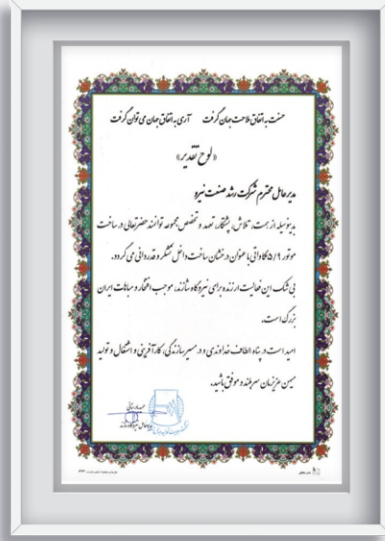 حسنت به اتفاق ملاحت جهان گرفت آری به اتفاق جهان می توان گرفت
«لوح تقدیر»
مدیر عامل محترم شرکت رشد صنعت نیرو
بدینوسیله از همت، تلاش، پشتکار، تعهد و تخصص مجموعه توانمند حضرتعالی در ساخت
موتور ۵/۹ مگاواتی با عنوان درخشان ساخت داخل تشکر و قدردانی می گردد.
بی شک این فعالیت ارزنده برای نیروگاه شازند، موجب افتخار و مباهات ایران
بزرگ است.
امید است در پناه الطاف خداوندی و در مسیر سازندگی، کارآفرینی و اشتغال و تولید
میهن عزیزمان سربلند و موفق باشید.